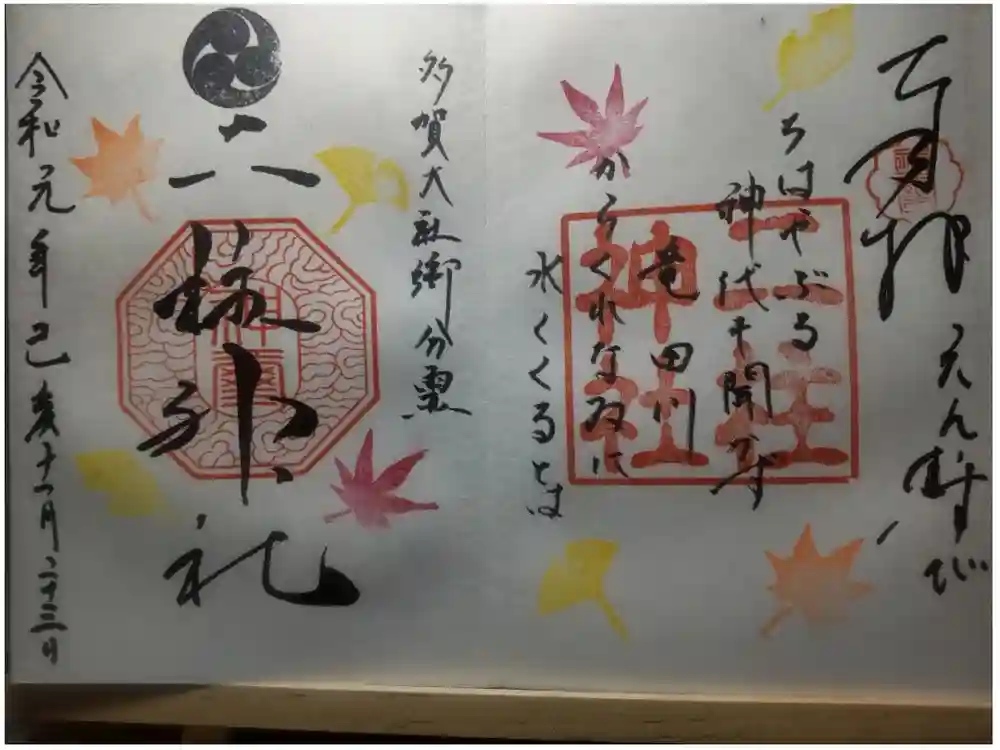 奉拝 えん結び
ちはやぶる
神代も聞かず
竜田川
からくれなゐに
水くくるとは
三柱
神社
多賀大社御分霊
三柱神社
令和元年己亥十一月二十三日